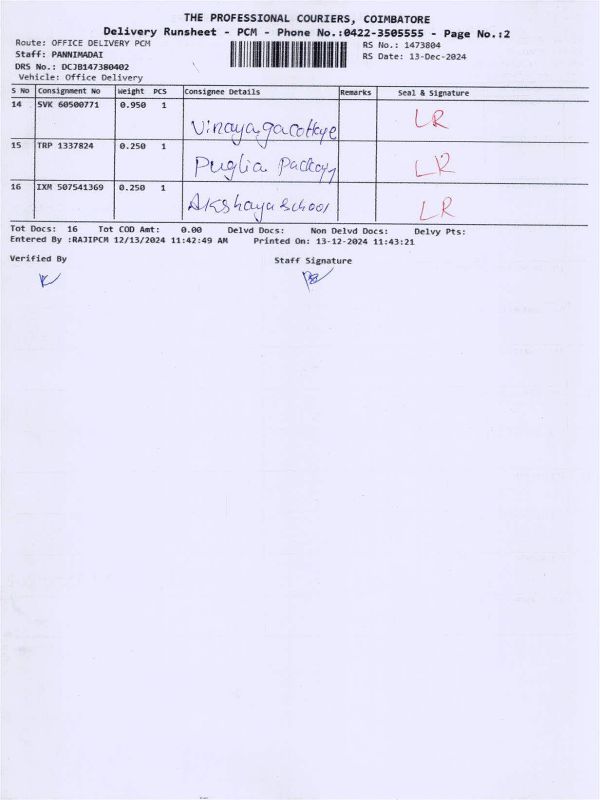 THE PROFESSIONAL COURIERS, COIMBATORE
Delivery Runsheet - PCM - Phone No.:0422-3505555 - Page No.:2
Route: OFFICE DELIVERY PCM
RS No.: 1473804
Staff: PANNIMADAI
RS Date: 13-Dec-2024
DRS No.: DCJB147380402
Vehicle: Office Delivery
S No Consignment No Weight PCS Consignee Details Remarks Seal & Signature
14 SVK 60500771 0.950 1 Vinayagacottage LR
15 TRP 1337824 0.250 1 Puglia LR
16 IXM 507541369 0.250 1 Akshaya school LR
Tot Docs: 16 Tot COD Amt: 0.00 Delvd Docs: Non Delvd Docs: Delvy Pts:
Entered By :RAJIPCM 12/13/2024 11:42:49 AM Printed On: 13-12-2024 11:43:21
Verified By Staff Signature